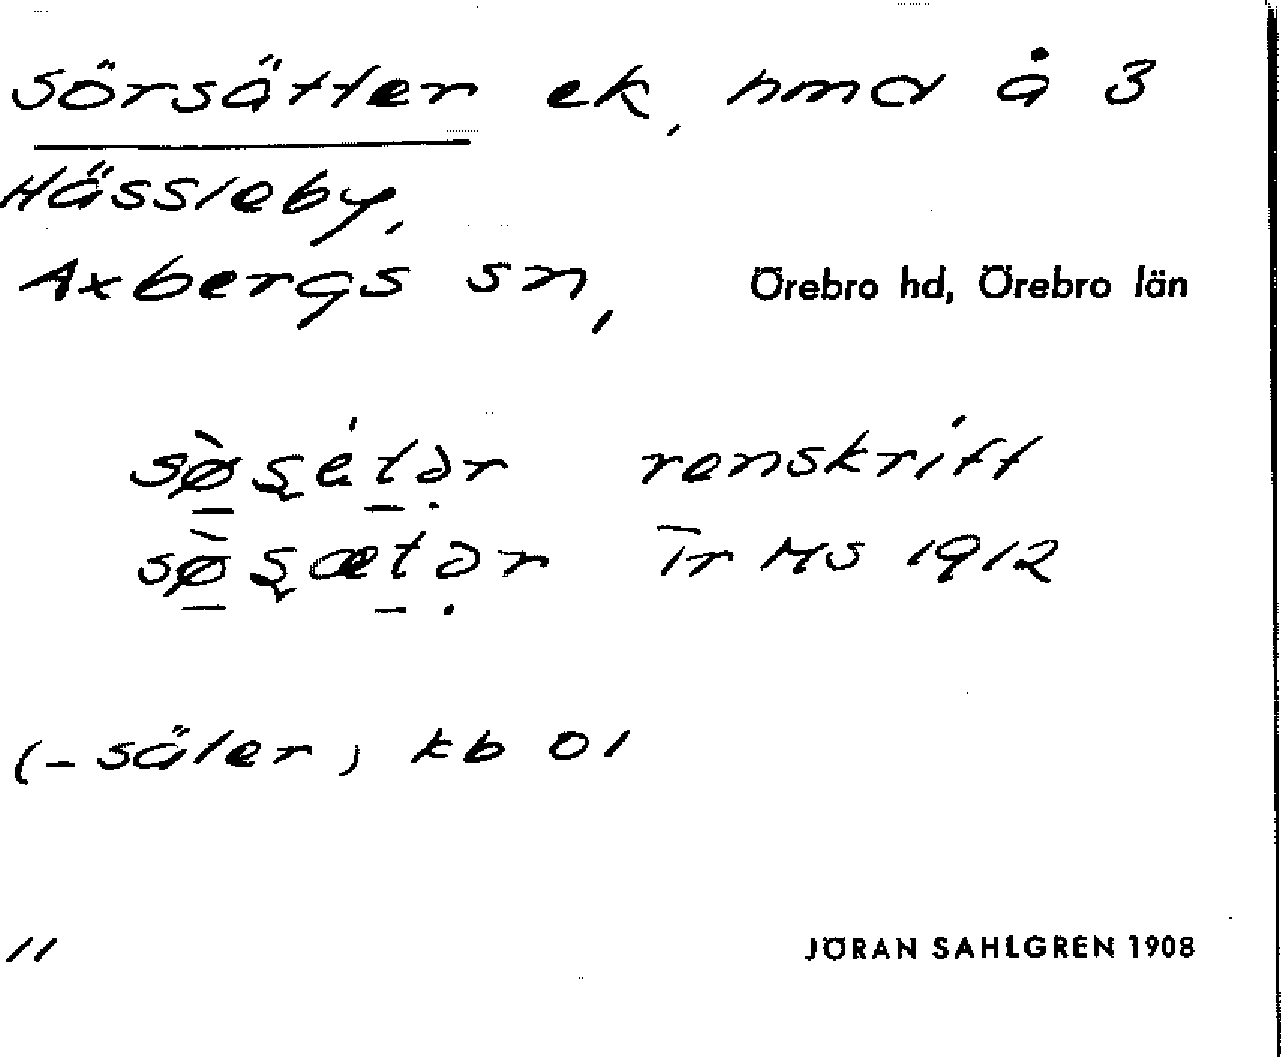 Sörsätter ek, hmd å 3
Hässleby,
Axbergs sn, Örebro hd, Örebro län
sø̀ʂétər renskrift
sø̀ʂætər Ir MS 1912
(-säter) kb 01
11
JÖRAN SAHLGREN 1908